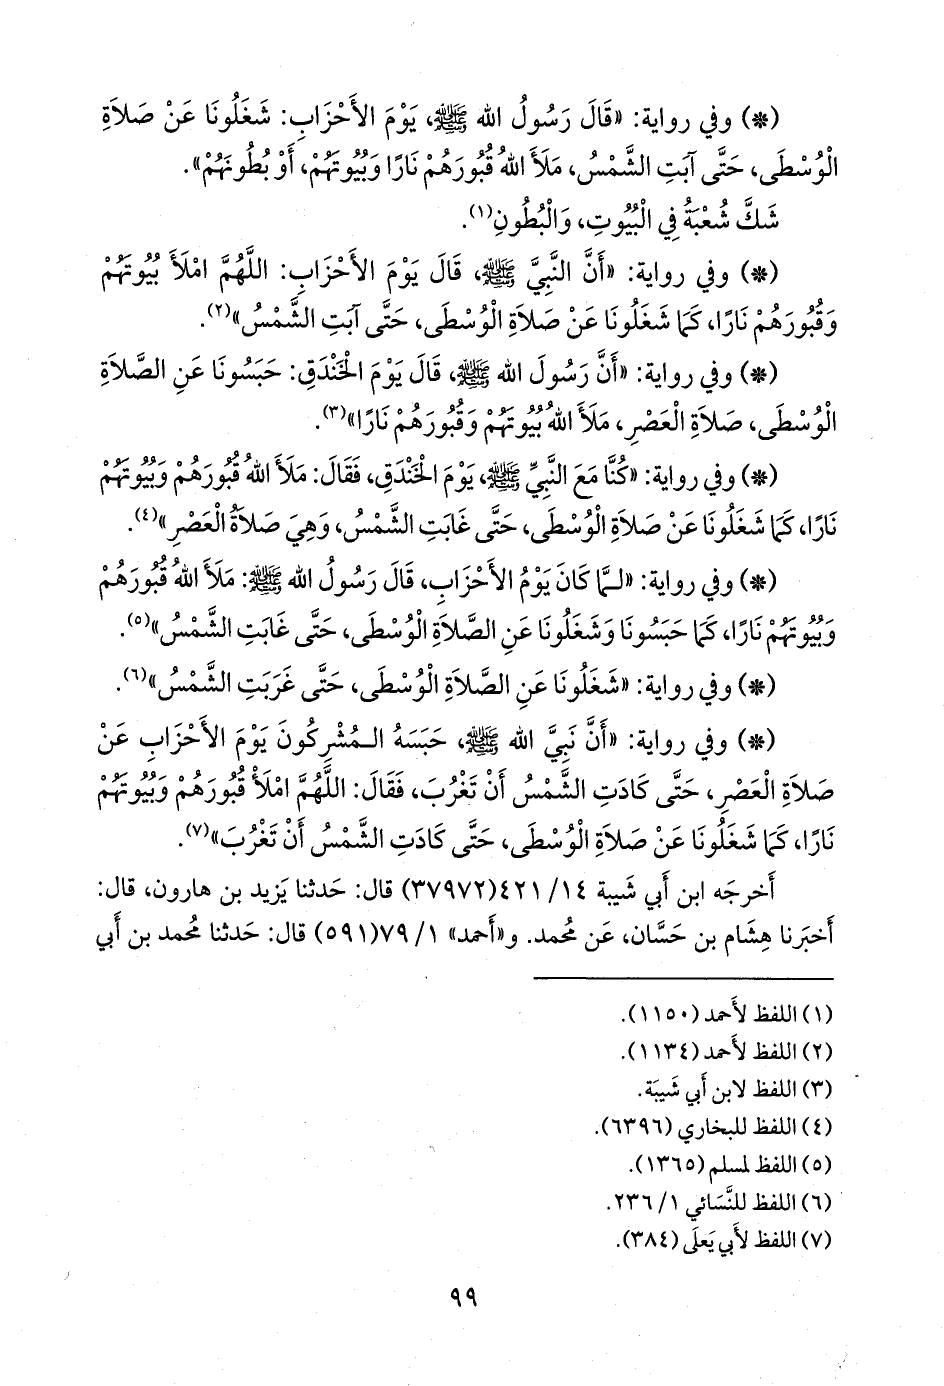 (*) وفي رواية: «قَالَ رَسُولُ الله ﷺ، يَوْمَ الأَحْزَابِ: شَغَلُونَا عَنْ صَلاَةِ
الْوُسْطَى، حَتَّى آبَتِ الشَّمْسُ، مَلَأَ اللهُ قُبُورَهُمْ نَارًا وَبُيُوتَهُمْ، أَوْ بُطُونَهُمْ».
شَكَّ شُعْبَةُ فِي الْبُيُوتِ، وَالْبُطُونِ(١).
(*) وفي رواية: «أَنَّ النَّبِيَّ ﷺ، قَالَ يَوْمَ الأَحْزَابِ: اللَّهُمَّ امْلَأْ بُيُوتَهُمْ
وَقُبُورَهُمْ نَارًا، كَمَا شَغَلُونَا عَنْ صَلاَةِ الْوُسْطَى، حَتَّى آبَتِ الشَّمْسُ»(٢).
(*) وفي رواية: «أَنَّ رَسُولَ الله ﷺ، قَالَ يَوْمَ الْخَنْدَقِ: حَبَسُونَا عَنِ الصَّلاَةِ
الْوُسْطَى، صَلاَةِ الْعَصْرِ، مَلَأَ اللهُ بُيُوتَهُمْ وَقُبُورَهُمْ نَارًا»(٣).
(*) وفي رواية: «كُنَّا مَعَ النَّبِيِّ ﷺ، يَوْمَ الْخَنْدَقِ، فَقَالَ: مَلَأَ اللهُ قُبُورَهُمْ وَبُيُوتَهُمْ
نَارًا، كَمَا شَغَلُونَا عَنْ صَلاَةِ الْوُسْطَى، حَتَّى غَابَتِ الشَّمْسُ، وَهِيَ صَلاَةُ الْعَصْرِ»(٤).
(*) وفي رواية: «لَـمَّا كَانَ يَوْمُ الأَحْزَابِ، قَالَ رَسُولُ الله ﷺ: مَلَأَ اللهُ قُبُورَهُمْ
وَبُيُوتَهُمْ نَارًا، كَمَا حَبَسُونَا وَشَغَلُونَا عَنِ الصَّلاَةِ الْوُسْطَى، حَتَّى غَابَتِ الشَّمْسُ»(٥).
(*) وفي رواية: «شَغَلُونَا عَنِ الصَّلاَةِ الْوُسْطَى، حَتَّى غَرَبَتِ الشَّمْسُ»(٦).
(*) وفي رواية: «أَنَّ نَبِيَّ الله ﷺ، حَبَسَهُ الـمُشْرِكُونَ يَوْمَ الأَحْزَابِ عَنْ
صَلاَةِ الْعَصْرِ، حَتَّى كَادَتِ الشَّمْسُ أَنْ تَغْرُبَ، فَقَالَ: اللَّهُمَّ امْلَأْ قُبُورَهُمْ وَبُيُوتَهُمْ
نَارًا، كَمَا شَغَلُونَا عَنْ صَلاَةِ الْوُسْطَى، حَتَّى كَادَتِ الشَّمْسُ أَنْ تَغْرُبَ»(٧).
أَخرجَه ابن أَبي شَيبة ١٤/ ٤٢١(٣٧٩٧٢) قال: حَدثنا يَزيد بن هارون، قال:
أَخبَرنا هِشام بن حَسَّان، عَن مُحمد. و«أَحمد» ١/ ٧٩(٥٩١) قال: حَدثنا مُحمد بن أَبي
(١) اللفظ لأَحمد (١١٥٠).
(٢) اللفظ لأَحمد (١١٣٤).
(٣) اللفظ لابن أَبي شَيبَة.
(٤) اللفظ للبخاري (٦٣٩٦).
(٥) اللفظ لمسلم (١٣٦٥).
(٦) اللفظ للنَّسَائي ١/ ٢٣٦.
(٧) اللفظ لأَبي يَعلَى (٣٨٤).
٩٩